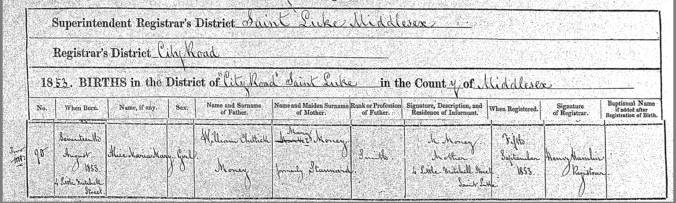 Superintendent Registrar's District Saint Luke Middlesex
Registrar's District City Road
1853. BIRTHS in the District of "City Road" Saint Luke in the County of Middlesex
No. When Born. Name, if any. Sex. Name and Surname of Father. Name and Maiden Surname of Mother. Rank or Profession of Father. Signature, Description, and Residence of Informant. When Registered. Signature of Registrar. Baptismal Name if added after Registration of Birth.
Seventeenth
August
1853
4 Little Mitchell
Street
Alice Maria Mary
Girl
William
Money
Mary
Money
formerly Stannard
Smith
M. Money
Mother
4 Little Mitchell Street
Saint Luke
Fifth
September
1853
Henry
Registrar